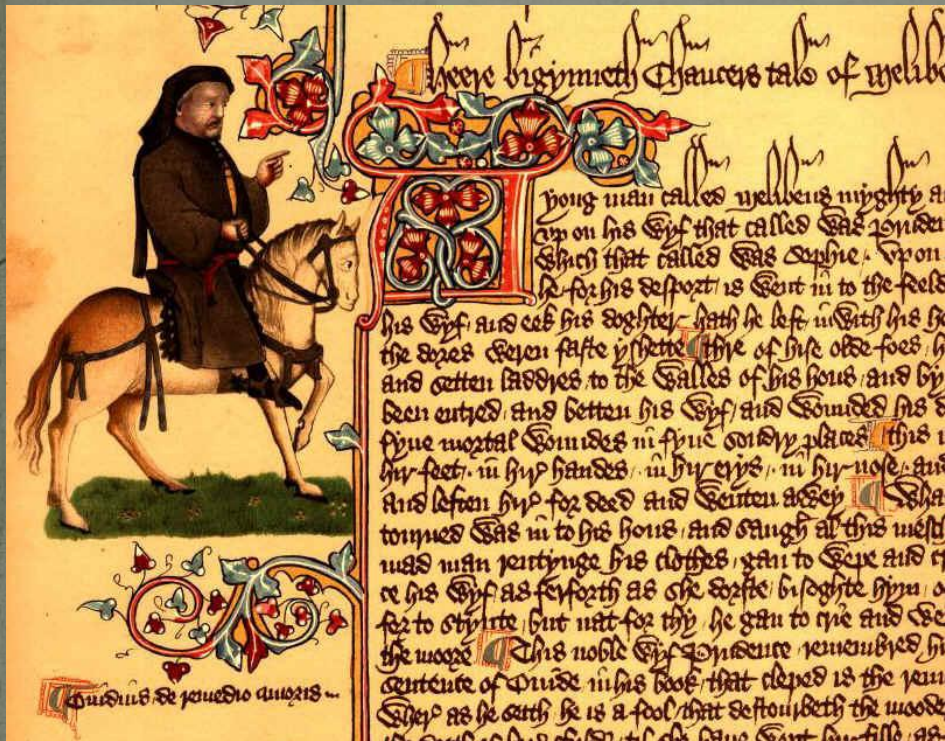 Heere bigynneth Chaucers tale of Melibe
A yong man called Melibeus myghty a
vp on his wyf that called was Prude
which that called was Sophie. Vpon
he for his desport is went in to the feeld
his wyf and eek his doghter hath he left inwith his h
the dores weren faste yshette thre of hise olde foes h
and setten laddres to the walles of his hous and by
been entred and betten his wyf and wounded his d
fyue mortal woundes in fyue sondry places this i
hir feet. in hir handes. in hir erys. in hir nose. and
and leften hir for deed and wenten awey Wha
tourned was in to his hous and saugh al this mesch
mad man rentynge his clothes gan to wepe and c
ce his wyf as ferforth as she dorste bisoghte hym
for to stynte but nat for thy he gan to crie and we
the moore This noble wyf Prudence remembred hi
sentence of Ouide in his book that cleped is the rem
Wher as he seith he is a fool that destourbeth the moode
Ouidius de remedio amoris